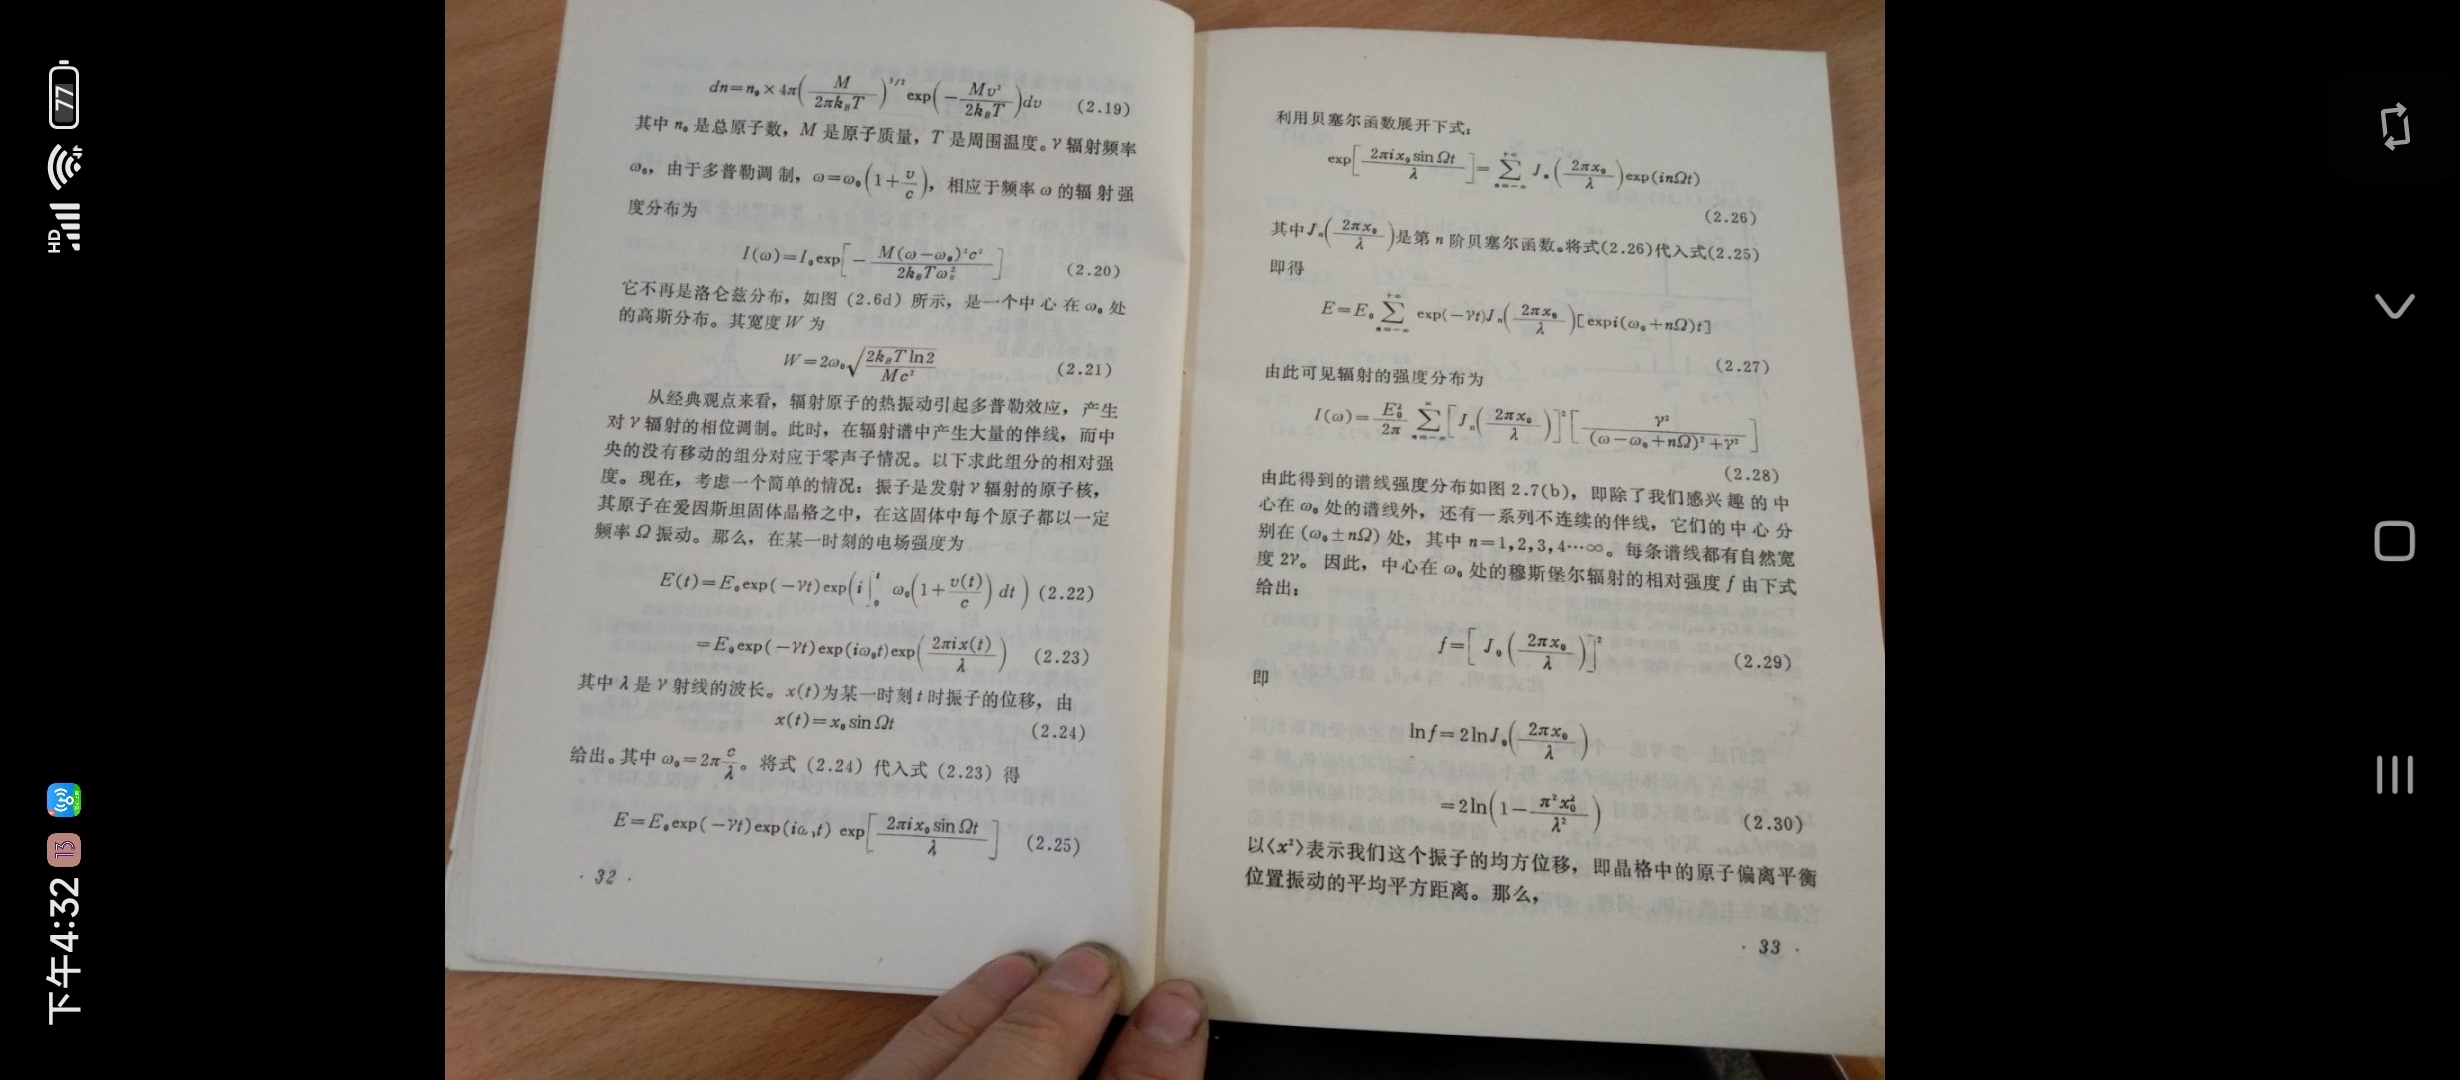 dn=n₀×4π(M/2πk_BT)^{3/2}exp(−Mv²/2k_BT)dv (2.19)
其中 n₀ 是总原子数，M 是原子质量，T 是周围温度。γ 辐射频率
ω₀，由于多普勒调制，ω=ω₀(1+v/c)，相应于频率 ω 的辐射强
度分布为
I(ω)=I₀exp[−M(ω−ω₀)²c²/2k_BTω₀²] (2.20)
它不再是洛仑兹分布，如图（2.6d）所示，是一个中心在 ω₀ 处
的高斯分布。其宽度 W 为
W=2ω₀√(2k_BTln2/Mc²) (2.21)
从经典观点来看，辐射原子的热振动引起多普勒效应，产生
对 γ 辐射的相位调制。此时，在辐射谱中产生大量的伴线，而中
央的没有移动的组分对应于零声子情况。以下求此组分的相对强
度。现在，考虑一个简单的情况：振子是发射 γ 辐射的原子核，
其原子在爱因斯坦固体晶格之中，在这固体中每个原子都以一定
频率 Ω 振动。那么，在某一时刻的电场强度为
E(t)=E₀exp(−γt)exp(i∫₀ᵗ ω₀(1+v(t)/c)dt) (2.22)
=E₀exp(−γt)exp(iω₀t)exp(2πix(t)/λ) (2.23)
其中 λ 是 γ 射线的波长。x(t)为某一时刻 t 时振子的位移，由
x(t)=x₀sinΩt (2.24)
给出。其中 ω₀=2πc/λ。将式（2.24）代入式（2.23）得
E=E₀exp(−γt)exp(iω₀t) exp[2πix₀sinΩt/λ] (2.25)
· 32 ·
利用贝塞尔函数展开下式：
exp[2πix₀sinΩt/λ]=∑_{n=−∞}^{+∞} Jₙ(2πx₀/λ)exp(inΩt)
(2.26)
其中Jₙ(2πx₀/λ)是第 n 阶贝塞尔函数。将式(2.26)代入式(2.25)
即得
E=E₀∑_{n=−∞}^{+∞} exp(−γt)Jₙ(2πx₀/λ)[expi(ω₀+nΩ)t]
(2.27)
由此可见辐射的强度分布为
I(ω)=E₀²/2π ∑_{n=−∞}^{∞}[Jₙ(2πx₀/λ)]²[γ²/(ω−ω₀+nΩ)²+γ²]
(2.28)
由此得到的谱线强度分布如图 2.7(b)，即除了我们感兴趣的中
心在 ω₀ 处的谱线外，还有一系列不连续的伴线，它们的中心分
别在 (ω₀±nΩ) 处，其中 n=1,2,3,4…∞。每条谱线都有自然宽
度 2γ。因此，中心在 ω₀ 处的穆斯堡尔辐射的相对强度 f 由下式
给出：
f=[J₀(2πx₀/λ)]² (2.29)
即
lnf=2lnJ₀(2πx₀/λ)
=2ln(1−π²x₀²/λ²) (2.30)
以⟨x²⟩表示我们这个振子的均方位移，即晶格中的原子偏离平衡
位置振动的平均平方距离。那么，
· 33 ·
下午4:32
13
HD
77